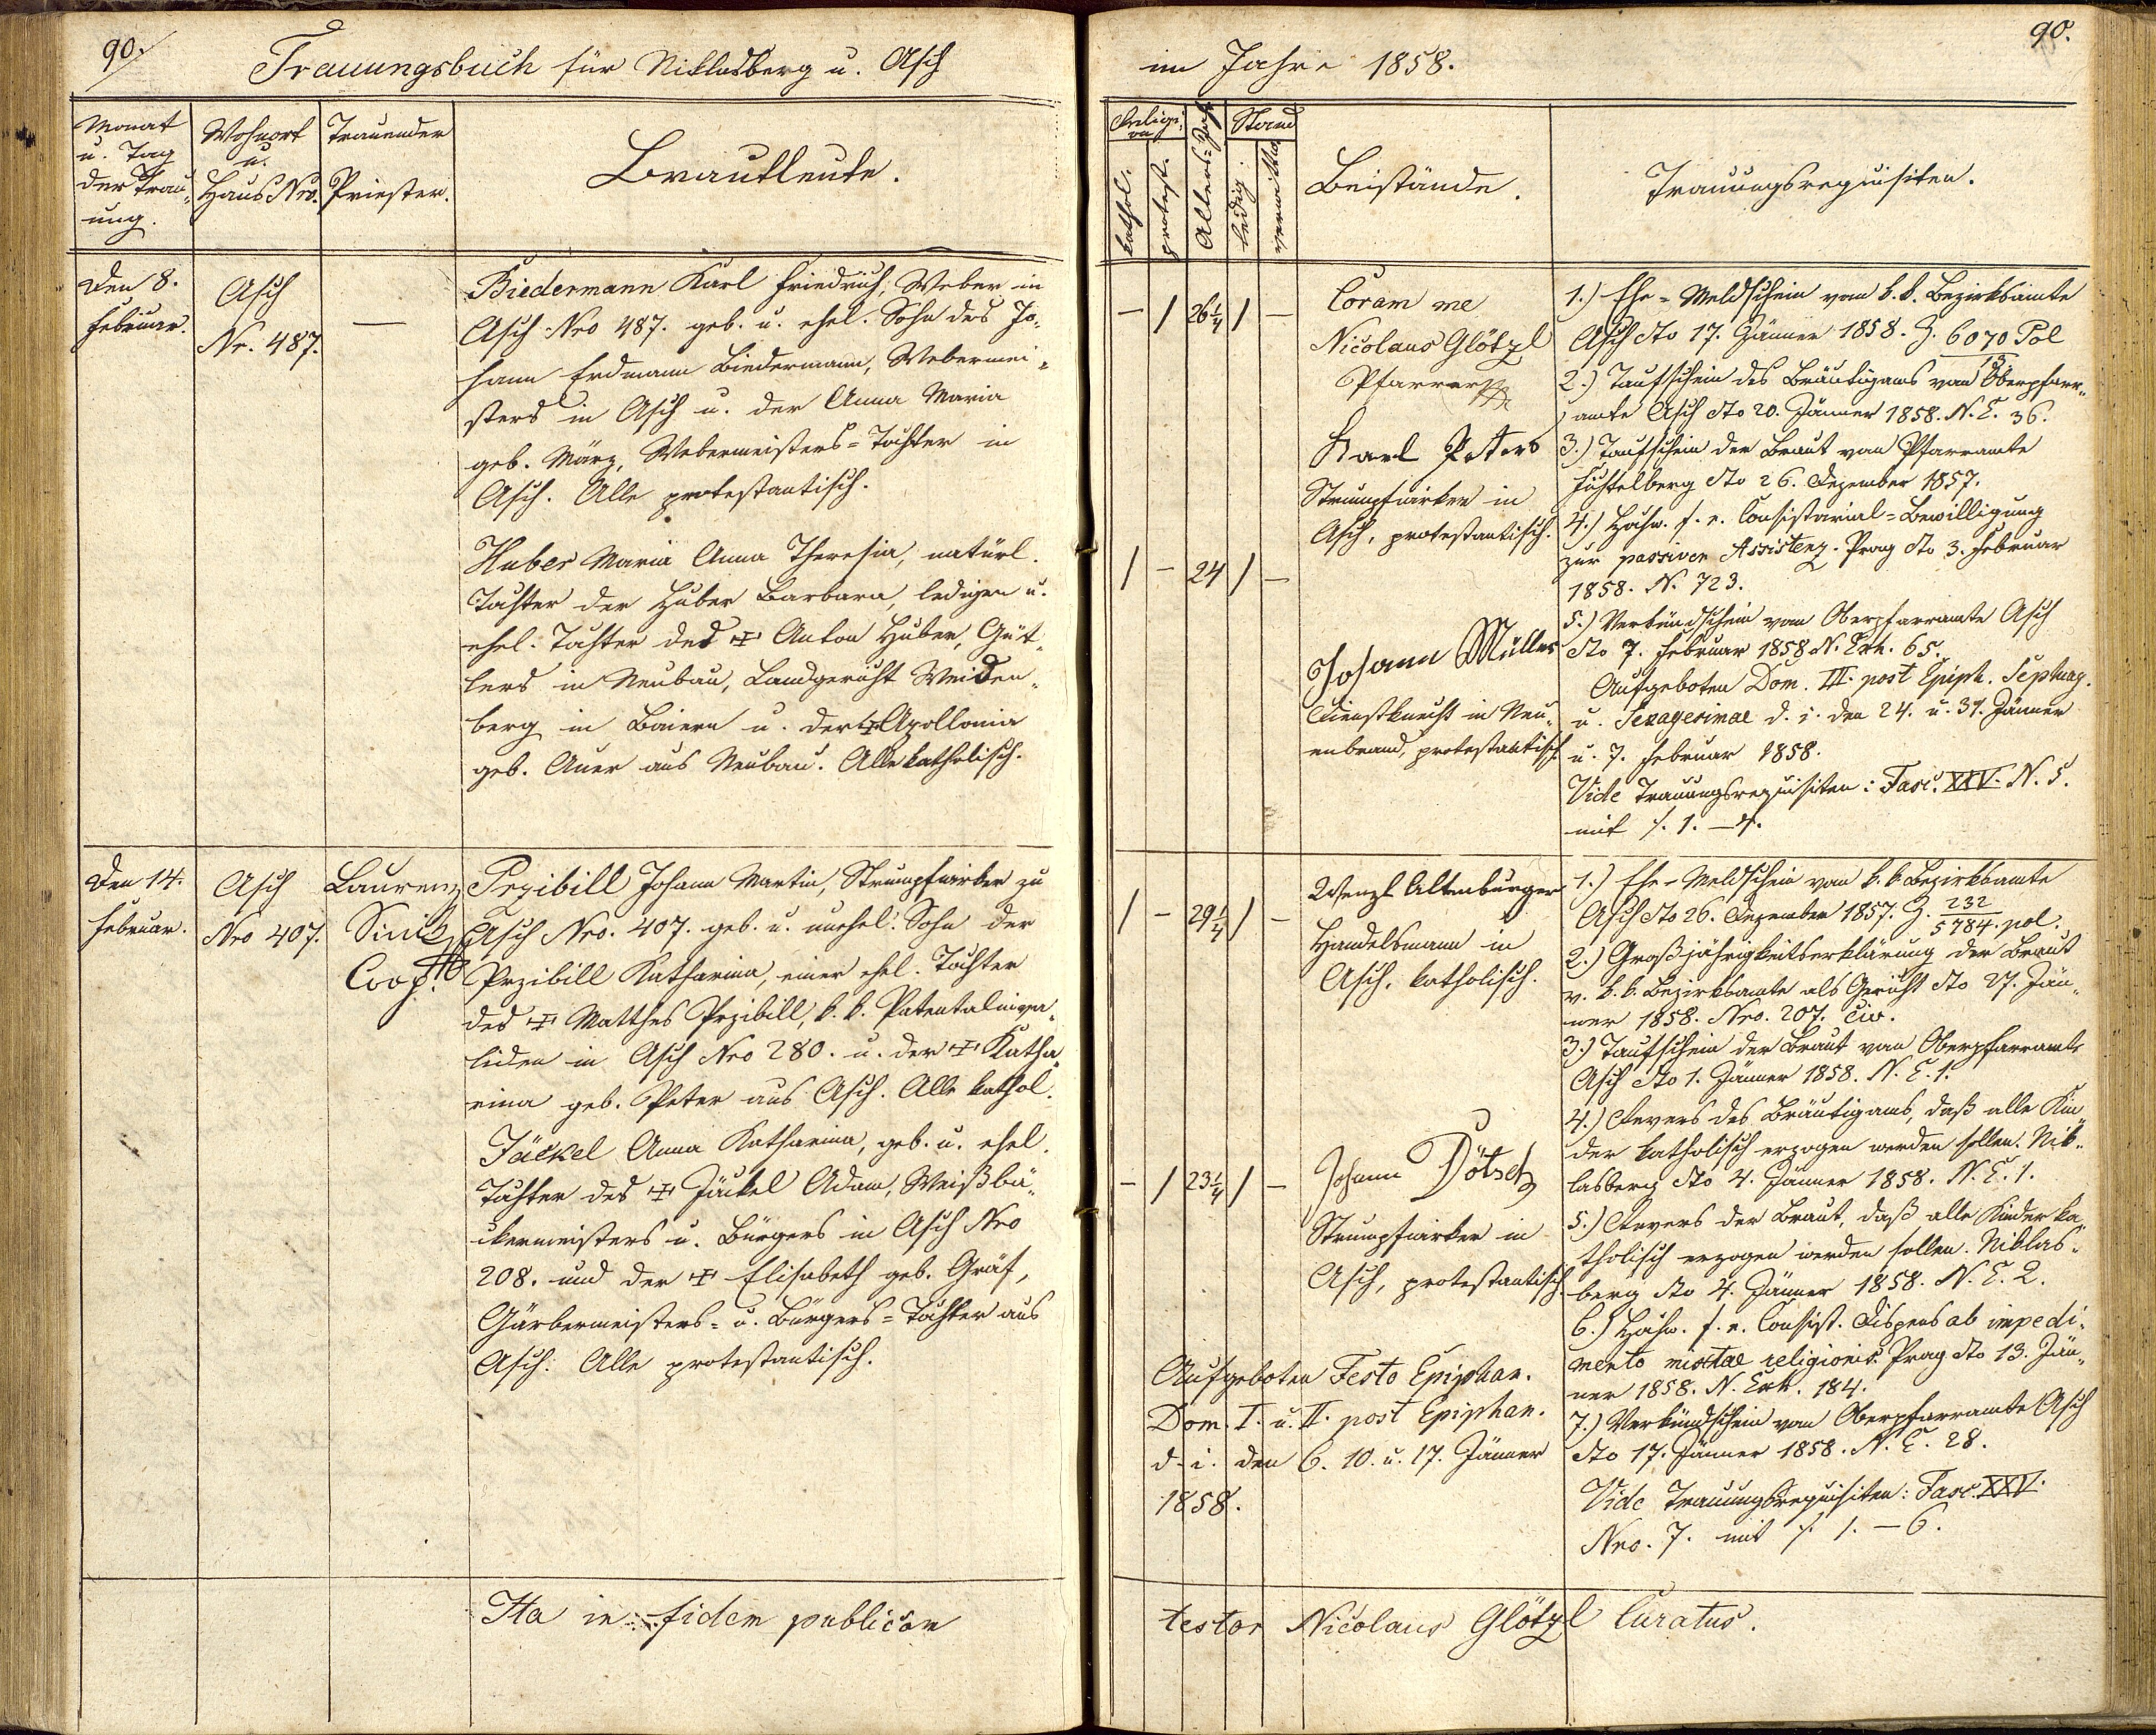 90./
Trauungsbuch für Niklasberg u. Asch
Monat
u. Tag
der Trau„
ung.
Wohnort
u.
Haus Nro.
Trauender
Priester.
Brautleute.
Den 8.
Februar.
Asch
Nr. 487.
—
Biedermann Karl Friedrich, Weber in
Asch Nro 487. geb. u. ehel. Sohn des Jo„
hann Erdmann Biedermann, Webermei„
sters in Asch u. der Anna Maria
geb. März, Webermeisters=Tochter in
Asch. Alle protestantisch.
Huber Maria Anna Theresia, natürl.
Tochter der Huber Barbara, ledigen u.
ehel. Tochter des ✠ Anton Huber, Güt„
lers in Neubau, Landgericht Weiden„
berg in Baiern u. der ✠ Apollonia
geb. Auer aus Neubau. Alle katholisch.
Den 14.
Februar.
Asch
Nro 407.
Laurenz
Coop.
Przibill Johann Martin, Strumpfwirker zu
Asch Nro. 407. geb. u. unehel. Sohn der
Przibill Katharina, einer ehel. Tochter
des ✠ Matthes Przibill, k. k. Patentalinva„
liden in Asch Nro 280. u. der ✠ Katha„
rina geb. Peter aus Asch. Alle kathol.
Jäckel Anna Katharina, geb. u. ehel.
Tochter des ✠ Jäckel Adam, Weißbä„
ckermeisters u. Bürgers in Asch Nro
208. und der ✠ Elisabeth geb. Gräf,
Gärbermeisters= u. Bürgers=Tochter aus
Asch. Alle protestantisch.
Ita in fidem publicam
90.
im Jahre 1858.
Religi„
on
kathol.
protest.
Alters=Jahr
Stand
ledig
verwittw.
Beistände.
Trauungsrequisiten.
— / 26 1/4 / —
Coram me
Nicolaus Glötzl
Pfarrer
Karl Peters
Strumpfwirker in
Asch, protestantisch.
/ — 24 / —
Johann Müller
Dienstknecht in Neu„
enbrand, protestantisch.
1.) Ehe=Meldschein vom k. k. Bezirksamte
Asch dto 17. Jänner 1858. Z. 6070 Pol
13.
2.) Taufschein des Bräutigams vom Oberpfarr„
amte Asch dto 20. Jänner 1858. N. E. 36.
3.) Taufschein der Braut vom Pfarramte
Fichtelberg dto 26. Dezember 1857.
4.) Hochw. f. e. Consistorial=Bewilligung
zur passiven Assistenz. Prag dto 3. Februar
1858. N. 723.
5.) Verkündschein vom Oberpfarramte Asch
dto 7. Februar 1858 N. Exh. 65.
Aufgeboten Dom. III. post Epiph. Septuag.
u. Sexagesimae d. i. den 24. u. 31. Jänner
u. 7. Februar 1858.
Vide Trauungsrequisiten: Fasc. XXV. N. 5.
mit /. 1. — 4.
/ — 29 1/4 / —
Wenzl Altenburger
Handelsmann in
Asch, katholisch.
— / 23 1/4 / —
Johann Dötsch
Strumpfwirker in
Asch, protestantisch.
Aufgeboten Festo Epiphan.
Dom. I. u. II. post Epiphan.
d. i. den 6. 10. u. 17. Jänner
1858.
1.) Ehe=Meldschein vom k. k. Bezirksamte
Asch dto 26. Dezember 1857. Z. 232/5784. pol.
2.) Großjährigkeitserklärung der Braut
v. k. k. Bezirksamte als Gericht dto 27. Jän„
ner 1858. Nro. 207. civ.
3.) Taufschein der Braut vom Oberpfarramte
Asch dto 1. Jänner 1858. N. E. 1.
4.) Revers des Bräutigams, daß alle Kin
der katholisch erzogen werden sollen. Nik„
lasberg dto 4. Jänner 1858. N. E. 1.
5.) Revers der Braut, daß alle Kinder ka„
tholisch erzogen werden sollen. Niklas„
berg dto 4. Jänner 1858. N. E. 2.
6.) Hochw. f. e. Consist. Dispens ab impedi„
mento mixtae religionis. Prag dto 13. Jän„
ner 1858. N. Exh. 184.
7.) Verkündschein vom Oberpfarramte Asch
dto 17. Jänner 1858. N. E. 28.
Vide Trauungsrequisiten: Fasc. XXV.
Nro. 7. mit /. 1. — 6.
testor Nicolaus Glötzl Curatus.